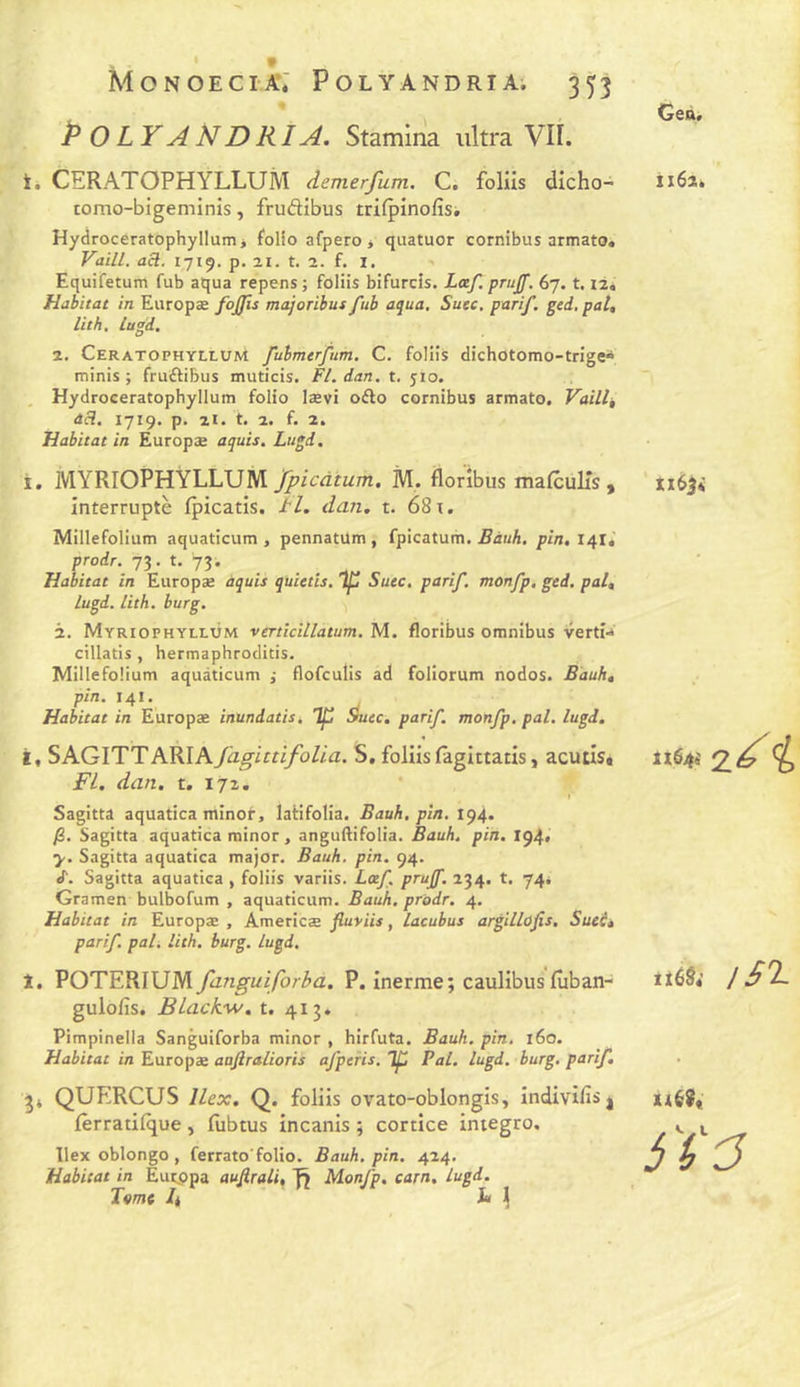 MONOECIA. POLYANDRIA. 353
Gen.
POLYANDRIA. Stamina ultra VII.
1. CERATOPHYLLUM demerſum. C. foliis dicho- 1162.
tomo-bigeminis, fructibus triſpinoſis.
Hydroceratophyllum, folio aſpero, quatuor cornibus armato.
Vaill. act. 1719. p. 21. t. 2. f. 1.
Equiſetum ſub aqua repens; foliis bifurcis. Lœſ. pruſſ. 67. t. 12.
Habitat in Europæ foſſis majoribus ſub aqua. Suec. pariſ. ged. pal.
lith. lugd.
2. CERATOPHYLLUM ſubmerſum. C. foliis dichotomo-trige-
minis; fructibus muticis. Fl. dan. t. 510.
Hydroceratophyllum folio lævi octo cornibus armato. Vaill.
act. 1719. p. 21. t. 2. f. 2.
Habitat in Europæ aquis. Lugd.
1. MYRIOPHYLLUM ſpicatum. M. floribus maſculis, 1163.
interrupte ſpicatis. Fl. dan. t. 681.
Millefolium aquaticum, pennatum, ſpicatum. Bauh. pin. 141.
prodr. 73. t. 73.
Habitat in Europæ aquis quietis. ♃ Suec. pariſ. monſp. ged. pal.
lugd. lith. burg.
2. MYRIOPHYLLUM verticillatum. M. floribus omnibus verti-
cillatis, hermaphroditis.
Millefolium aquaticum; floſculis ad foliorum nodos. Bauh.
pin. 141.
Habitat in Europæ inundatis. ♃ Suec. pariſ. monſp. pal. lugd.
1. SAGITTARIA ſagittifolia. S. foliis ſagittatis, acutis. 1164.
Fl. dan. t. 172.
Sagitta aquatica minor, latifolia. Bauh. pin. 194.
β. Sagitta aquatica minor, anguſtifolia. Bauh. pin. 194.
γ. Sagitta aquatica major. Bauh. pin. 94.
δ. Sagitta aquatica, foliis variis. Lœſ. pruſſ. 234. t. 74.
Gramen bulboſum, aquaticum. Bauh. prodr. 4.
Habitat in Europæ, Americæ fluviis, lacubus argilloſis. Suec.
pariſ. pal. lith. burg. lugd.
1. POTERIUM ſanguiſorba. P. inerme; caulibus ſuban- 1168. 152
guloſis. Blackw. t. 413.
Pimpinella Sanguiſorba minor, hirſuta. Bauh. pin. 160.
Habitat in Europæ auſtralioris aſperis. ♃ Pal. lugd. burg. pariſ.
3. QUERCUS Ilex. Q. foliis ovato-oblongis, indiviſis,
ſerratiſque, ſubtus incanis; cortice integro.
Ilex oblongo, ſerrato folio. Bauh. pin. 424.
Habitat in Europa auſtrali, ♄ Monſp. carn. lugd.
Tome I.